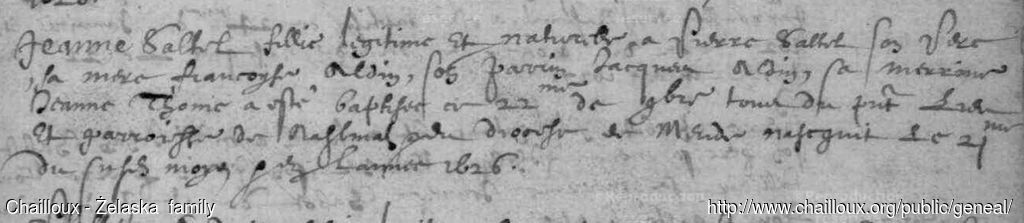 Jeanne Saltel fillie legitime Et naturelle a Pierre Saltel son Pere
sa mere francoyse Aldin, son parrin Jacques Aldin, sa merrine
Jeanne Thome a esté baptisee ce 22me de 9bre tous du pnt Lieu
Et parroisse de du diocese de Mende nasequit Le 21me
du susd moys en Lannee 1626.
Chailloux - Żelaska family
http://www.chailloux.org/public/geneal/